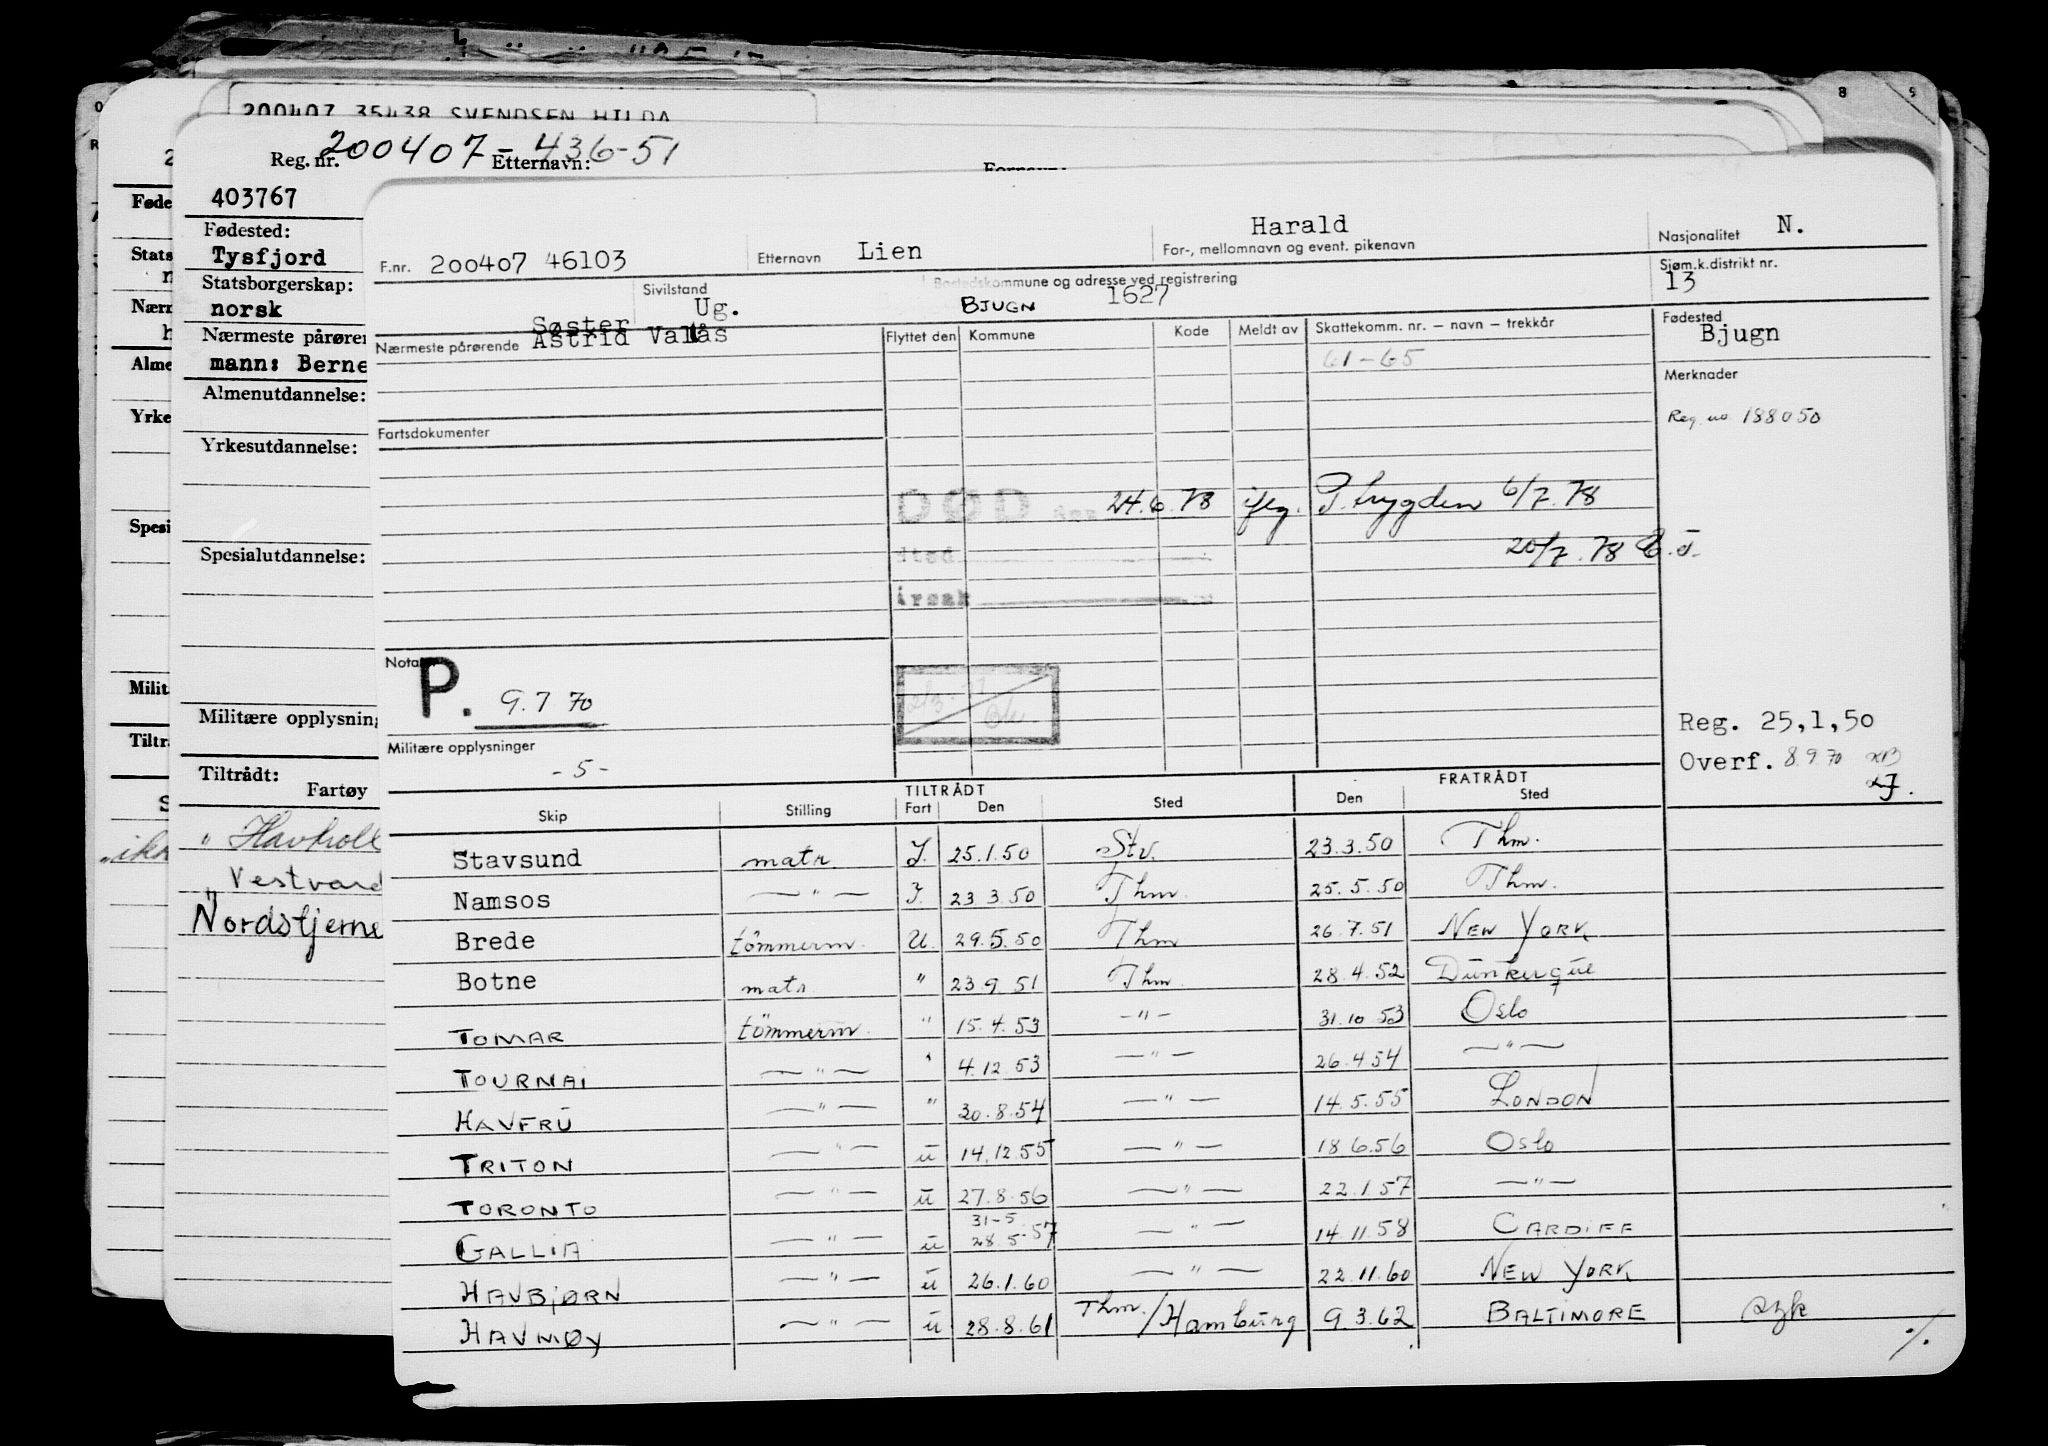 200407 35438 SVENDSEN HILDA
200407 - 436-51
Reg. nr. Etternavn: Fornavn:
403767
Fødested:
Tysfjord
Statsborgerskap:
norsk
Nærmeste pårører
mann: Berne
Almenutdannelse:
Yrkesutdannelse:
Spesialutdannelse:
Militære opplysning
Tiltrådt:
Fartøy
" Havholl
Vestvard
" Nordstjerne
Føde
Stats
Nærm
Alme
Yrke
Spesi
Milit
Tiltr
F.nr. 200407 46103 Etternavn Lien Harald For-, mellomnavn og event. pikenavn Nasjonalitet N.
Sivilstand Ug. Bostedskommune og adresse ved registrering BJUGN 1627 Sjøm.k.distrikt nr. 13
Nærmeste pårørende Søster Astrid Valås Flyttet den Kommune Kode Meldt av Skattekomm. nr. – navn – trekkår Fødested Bjugn
61-65 Merknader
Reg. no 188050
Fartsdokumenter
DØD den 24.6.78 iflg. P. trygden 6/7.78
sted 20/7.78
årsak
Notater P. 9.7 70
Reg. 25,1,50
Militære opplysninger Overf. 8.9.70
-5-
TILTRÅDT FRATRÅDT
Skip Stilling Fart Den Sted Den Sted
Stavsund matr J. 25.1.50 Stv. 23.3.50 Thm.
Namsos —"— J. 23 3.50 Thm. 25.5.50 Thm.
Brede tömmerm. U. 29.5.50 Thm 26.7.51 NEW YORK
Botne matr. " 23 9 51 Thm. 28.4.52 Dunkerque
TOMAR tömmerm. " 15.4.53 -"- 31.10 53 Oslo
TOURNAI —"— " 4.12 53 —"— 26.4 54 —"—
HAVFRU —"— " 30.8.54 —"— 14.5.55 LONDON
TRITON —"— u 14.12.55 —"— 18 6.56 Oslo
TORONTO —"— u 27.8.56 —"— 22.1.57 —"—
GALLIA —"— u 31-5 28.5.57 —"— 14.11.58 CARDIFF
HAVBJØRN —"— u 26.1.60 —"— 22.11.60 NEW YORK
HAVMØY —"— u 28.8.61 Thm./Hamburg 9.3.62 BALTIMORE syk
./.